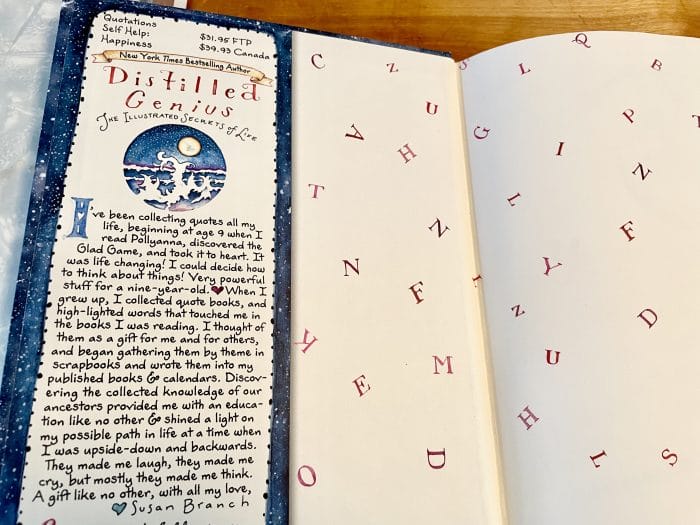 Quotations
Self Help:
Happiness
$31.95 FTP
$39.93 Canada
New York Times Bestselling Author
Distilled
Genius
The Illustrated Secrets of Life
I've been collecting quotes all my
life, beginning at age 9 when I
read Pollyanna, discovered the
Glad Game, and took it to heart. It
was life changing! I could decide how
to think about things! Very powerful
stuff for a nine-year-old. ♥ When I
grew up, I collected quote books, and
high-lighted words that touched me in
the books I was reading. I thought of
them as a gift for me and for others,
and began gathering them by theme in
scrapbooks and wrote them into my
published books & calendars. Discov-
ering the collected knowledge of our
ancestors provided me with an educa-
tion like no other & shined a light on
my possible path in life at a time when
I was upside-down and backwards.
They made me laugh, they made me
cry, but mostly they made me think.
A gift like no other, with all my love,
♥ Susan Branch
C Z
U
A
H
T
N
N
F
Y
M
E
D
O
S L Q B
G I P
Z
L F
Y
Z D
U
H
L S